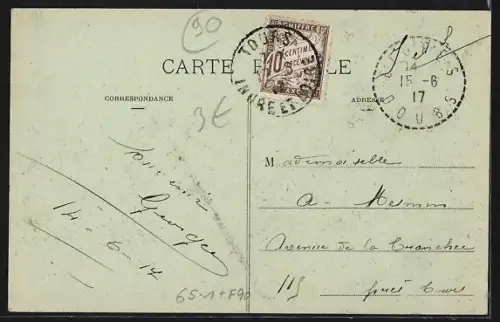 90
TOURS
INDRE ET LOIRE
CHIFFRE
10 CENTIMES
CARTE POSTALE
CORRESPONDANCE
ADRESSE
14
15-6
17
DOUBS
3€
Mademoiselle
A. Mesmin
Avenue de la Tranchée
115
près Tours
Souvenir
Georges
14-6-17
65-1+F90